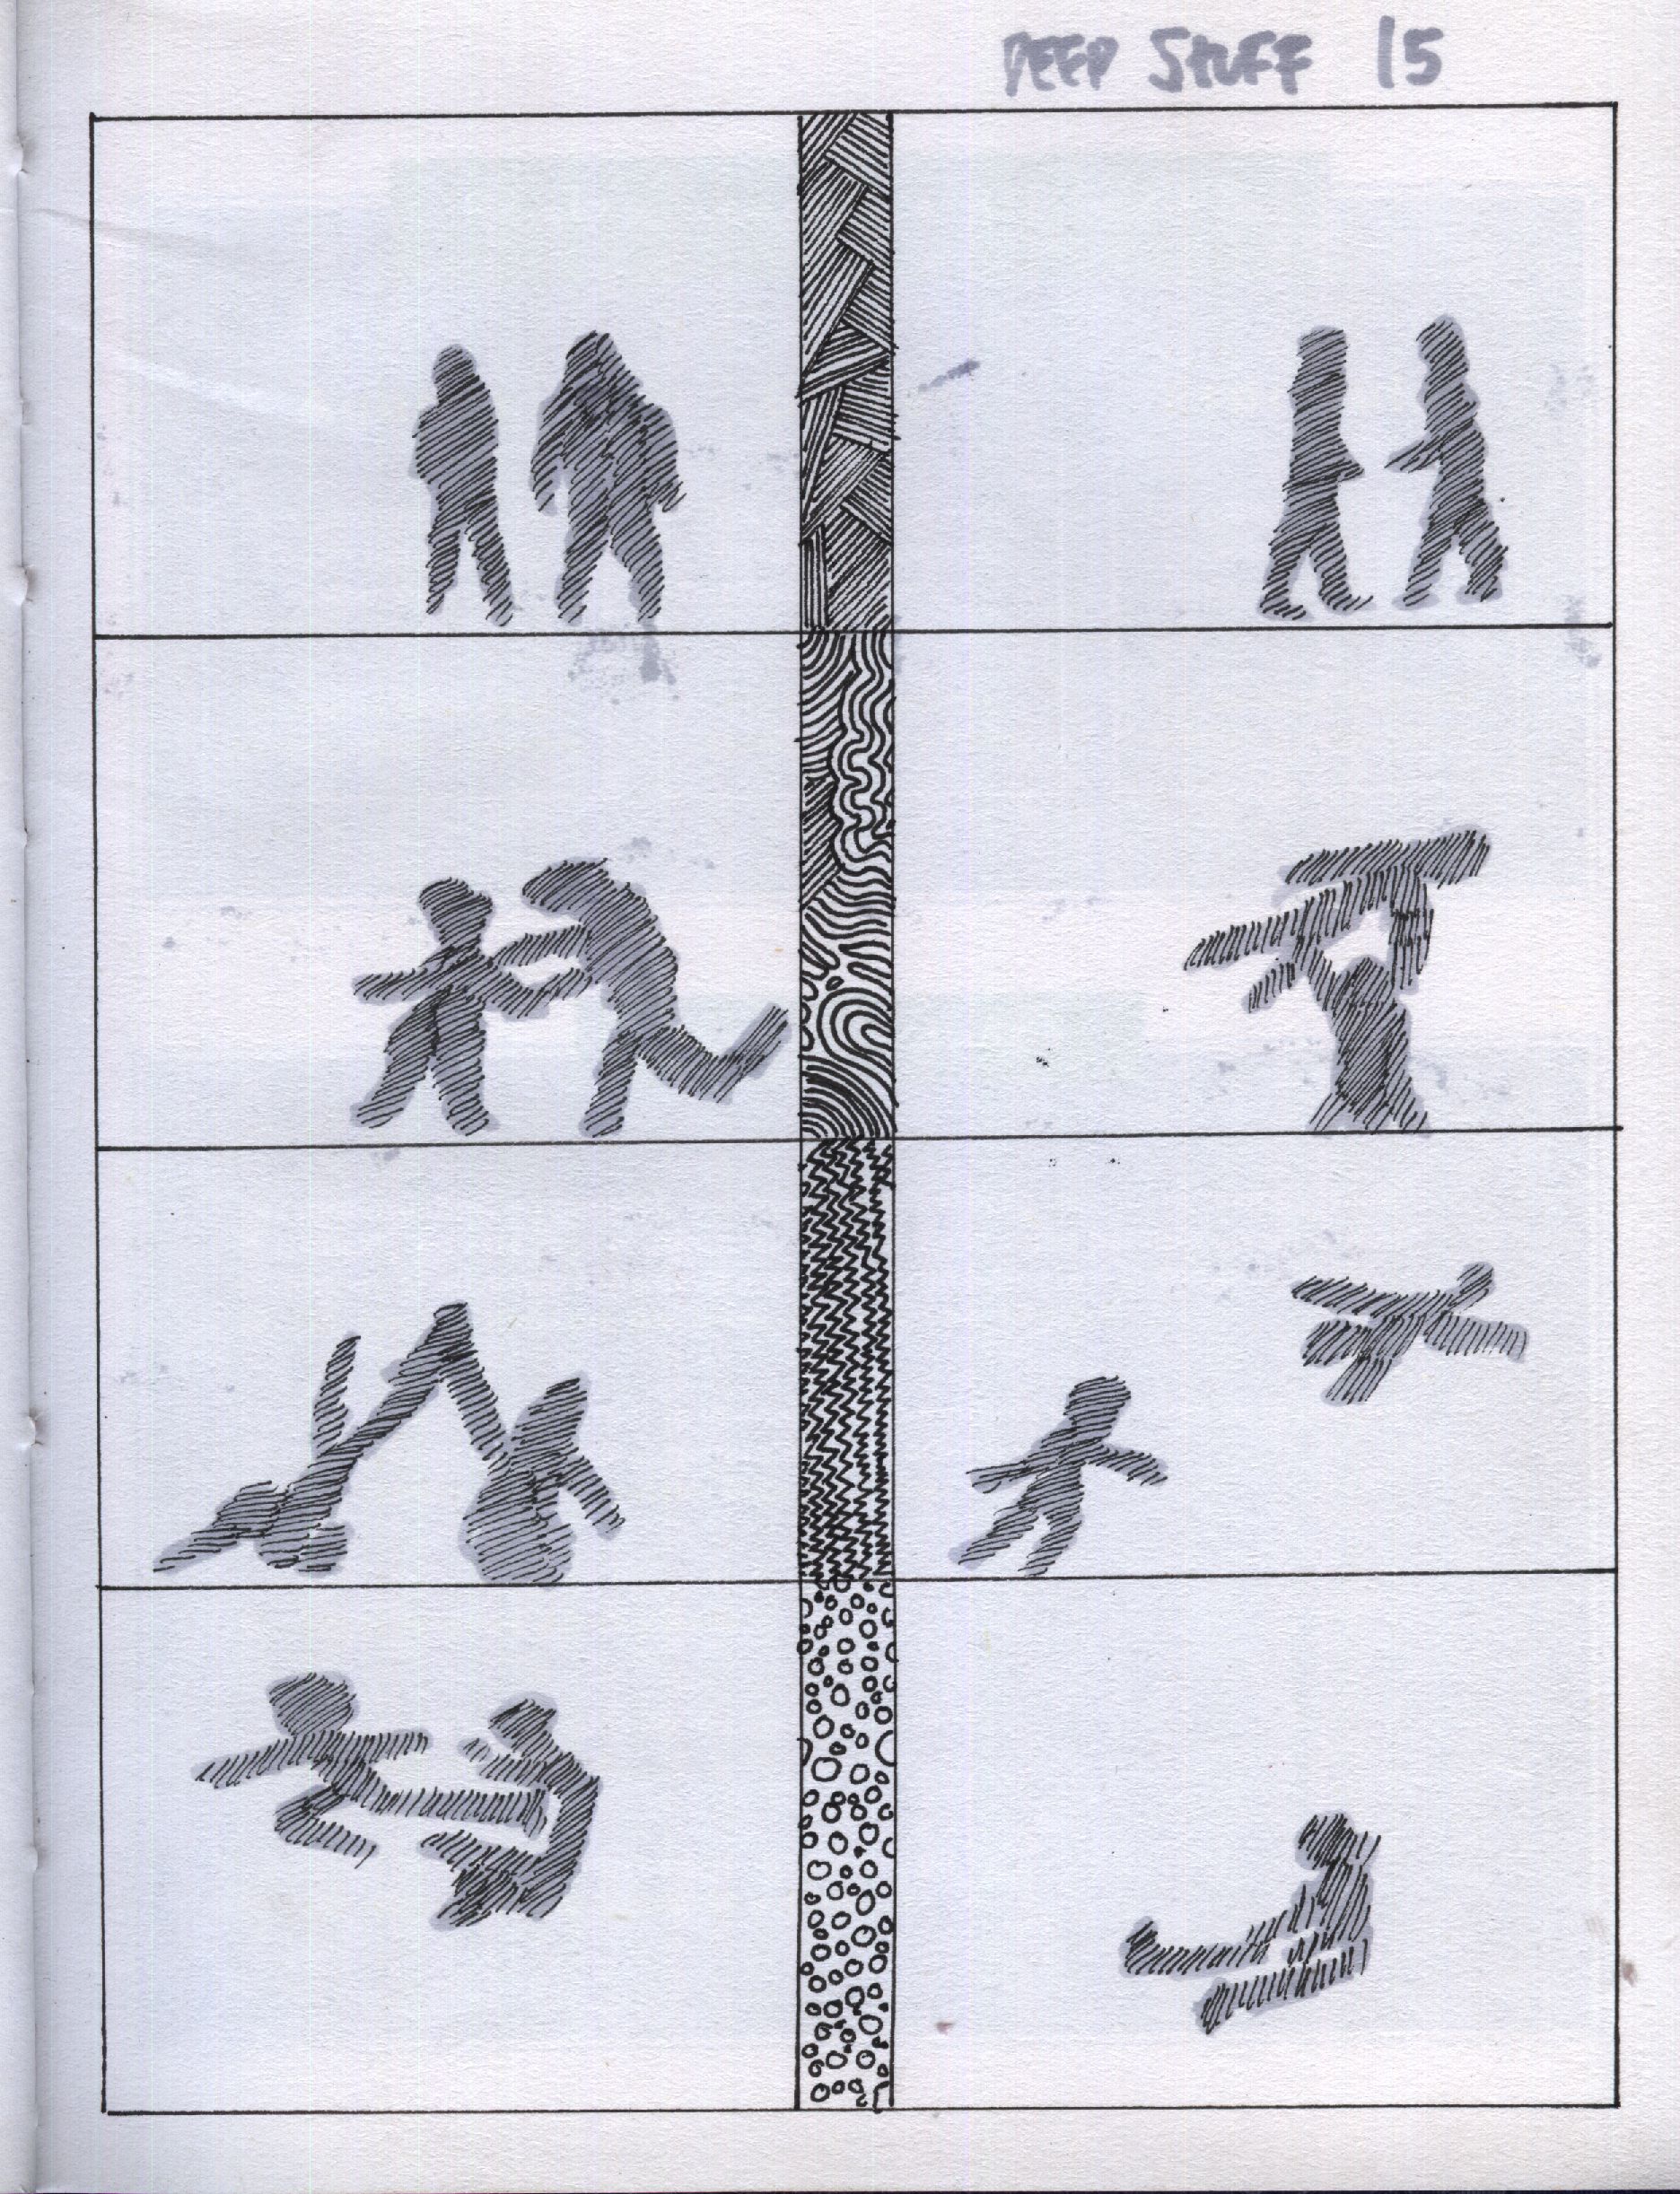 DEEP STUFF 15